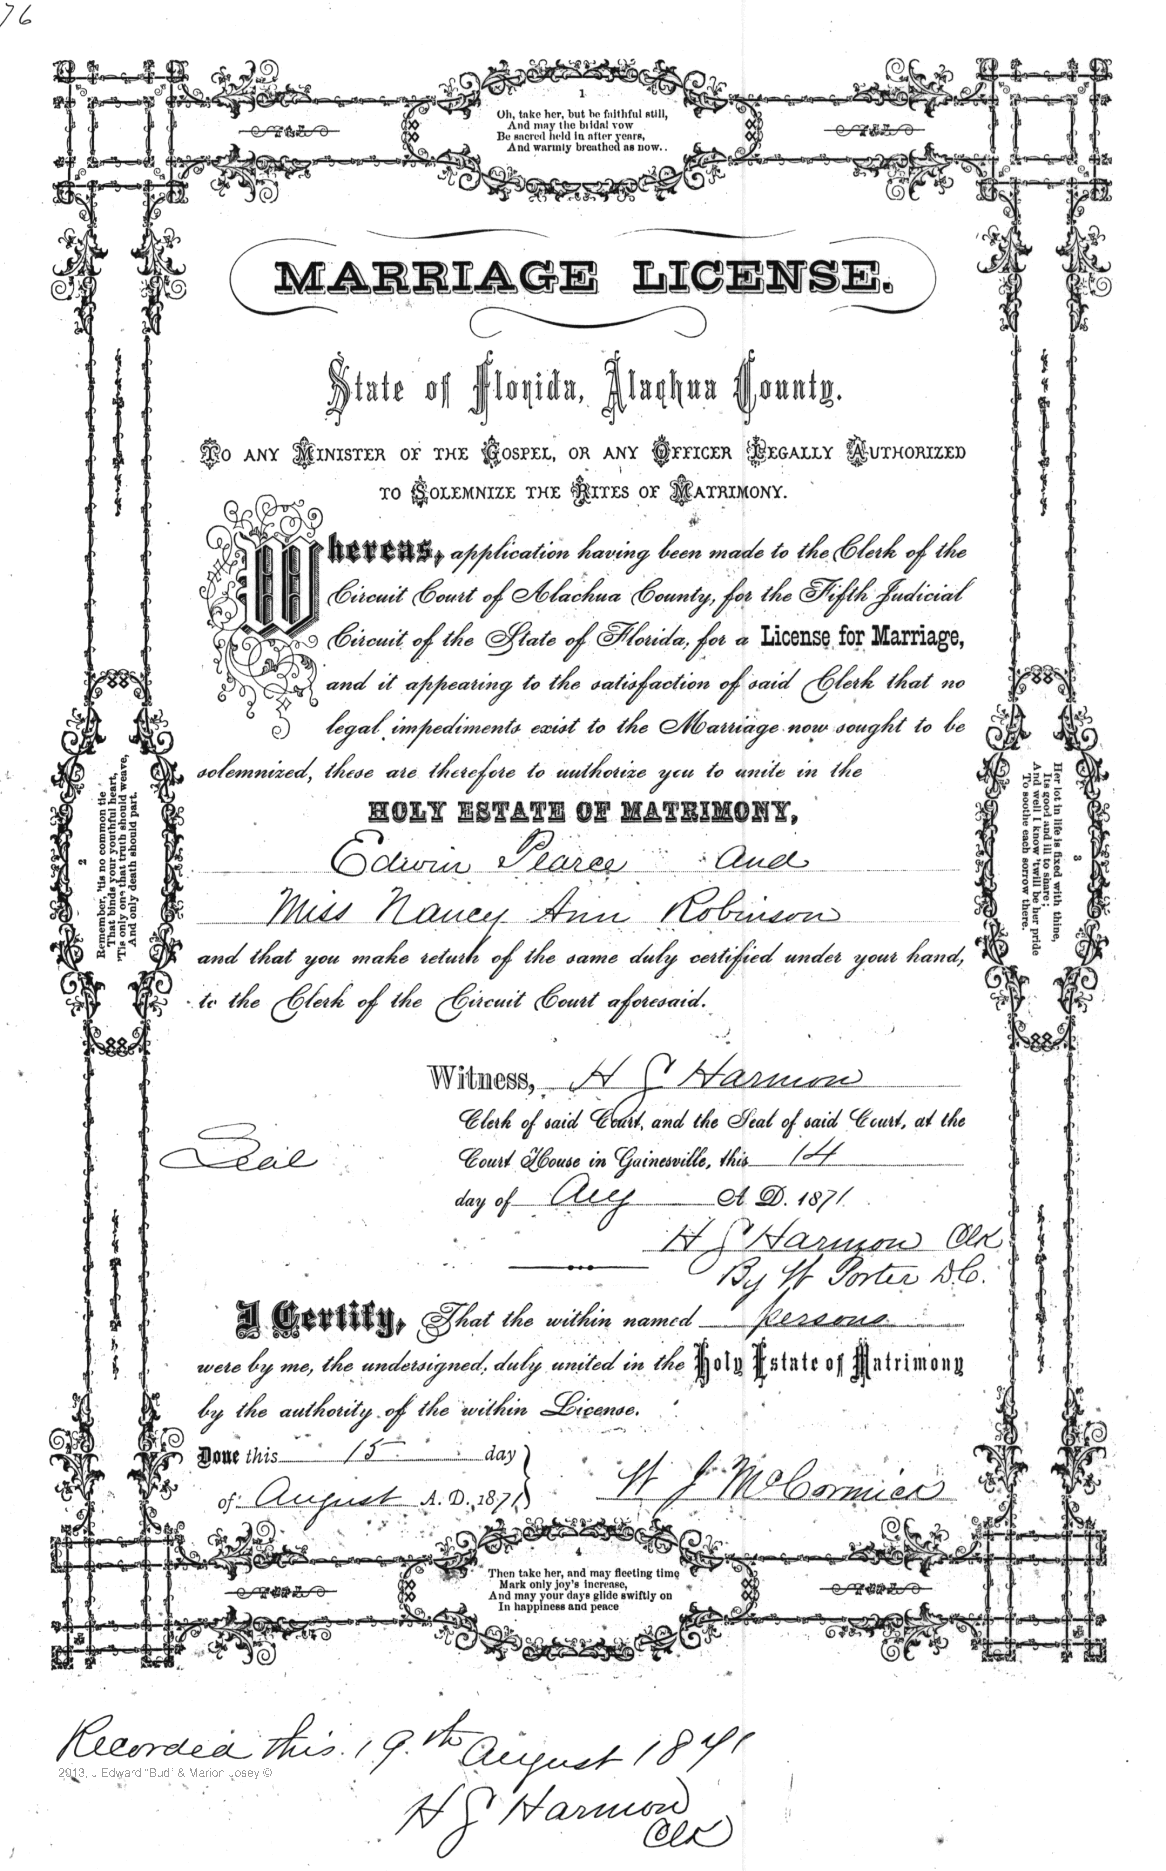 76
1
Oh, take her, but be faithful still,
And may the bridal vow
Be sacred held in after years,
And warmly breathed as now..
MARRIAGE LICENSE.
State of Florida, Alachua County.
TO ANY MINISTER OF THE GOSPEL, OR ANY OFFICER LEGALLY AUTHORIZED
TO SOLEMNIZE THE RITES OF MATRIMONY.
Whereas, application having been made to the Clerk of the
Circuit Court of Alachua County, for the Fifth Judicial
Circuit of the State of Florida, for a License for Marriage,
and it appearing to the satisfaction of said Clerk that no
legal impediments exist to the Marriage now sought to be
solemnized, these are therefore to authorize you to unite in the
HOLY ESTATE OF MATRIMONY,
Edwin Pearce and
Miss Nancy Ann Robinson
and that you make return of the same duly certified under your hand,
to the Clerk of the Circuit Court aforesaid.
2
Remember, 'tis no common tie
That binds your youthful heart,
'Tis only one that truth should weave,
And only death should part.
3
Her lot in life is fixed with thine,
Its good and ill to share;
And well I know 'twill be her pride
To soothe each sorrow there.
Witness, H G Harmon
Clerk of said Court, and the Seal of said Court, at the
Seal
Court House in Gainesville, this 14
day of Aug A. D. 1871.
H G Harmon Clk
By W Porter D.C.
I Certify, That the within named persons
were by me, the undersigned, duly united in the Holy Estate of Matrimony
by the authority of the within License.
Done this 15 day
of August A. D., 1871
W J McCormick
4
Then take her, and may fleeting time
Mark only joy's increase,
And may your days glide swiftly on
In happiness and peace
Recorded this 19th August 1871
2013, J Edward "Bud" & Marion Josey ©
H G Harmon
Clk